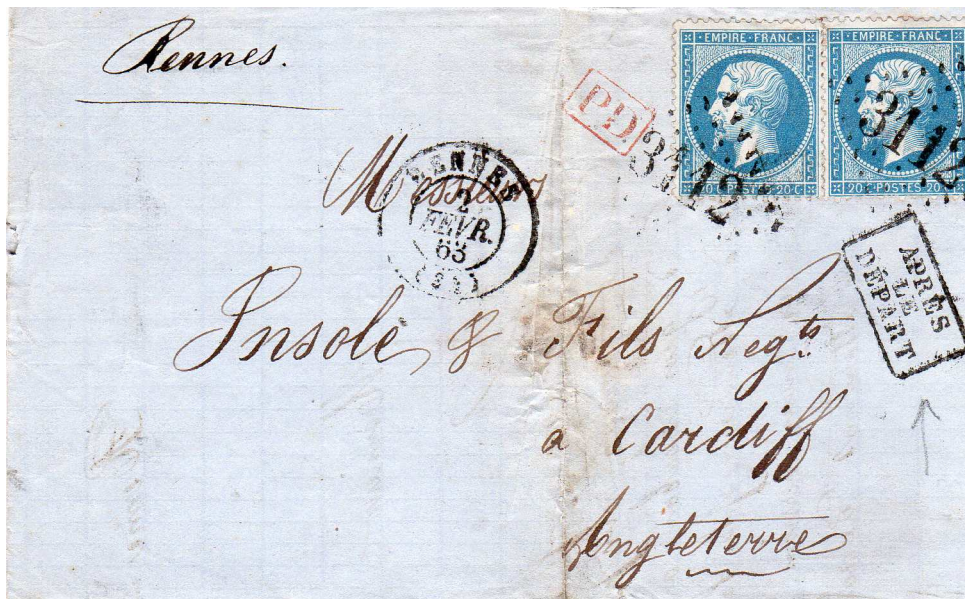 Rennes.
EMPIRE · FRANC
20 · POSTES · 20 · C
EMPIRE · FRANC
20 · POSTES · 20
P.D.
3112
3112
RENNES
2
FEVR.
63
APRÈS
LE
DÉPART
Messieurs
Insole & Fils Negts
a Cardiff
Angleterre